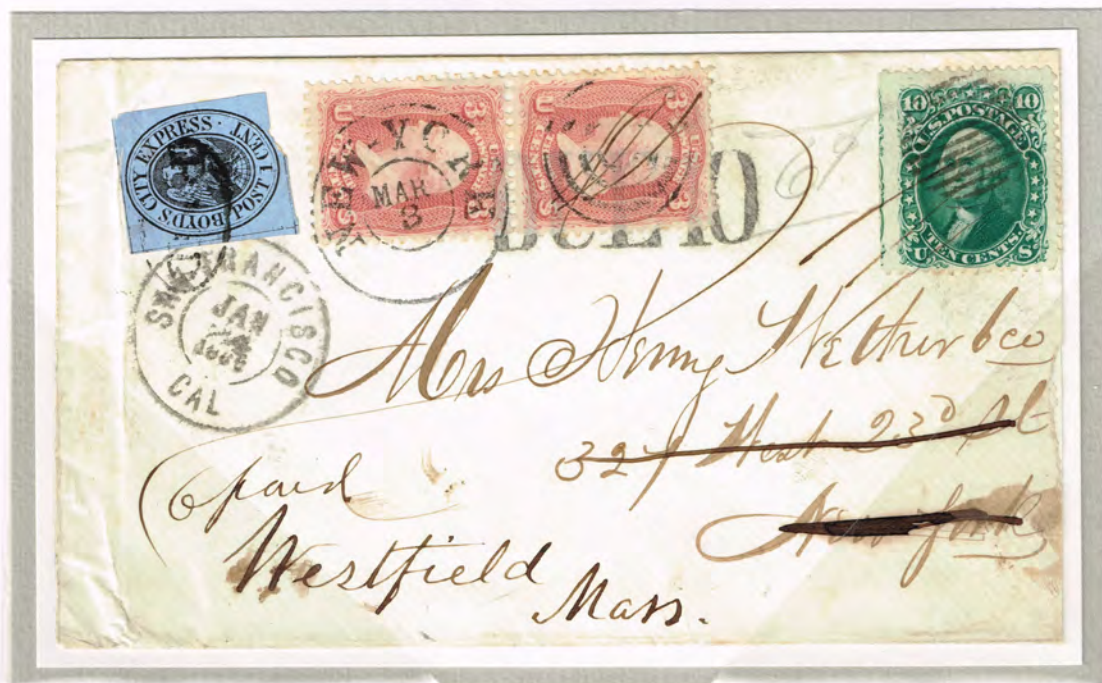 BOYD'S CITY EXPRESS · POST. 1 CENT
U 3 CENTS
U 3 CENTS S
NEW-YORK
MAR
3
DUE 10
10 U.S. POSTAGE 10
U TEN CENTS. S
SAN FRANCISCO
JAN
CAL
Mrs Henry Wetherbee
327 West 23d St
New York
6 paid
Westfield
Mass.